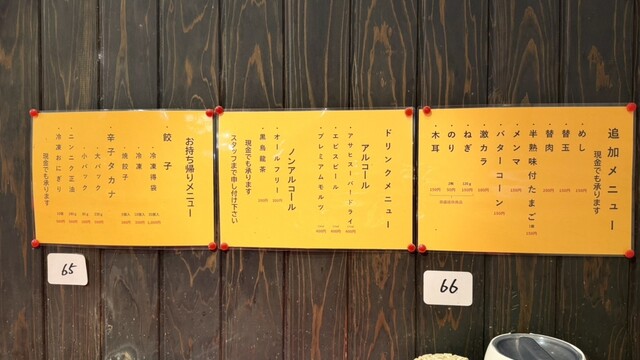 追加メニュー
現金でも承ります
・めし
・替玉
・替肉
・半熟味付たまご
・メンマ
・バターコーン
・激カラ
・ねぎ
・のり
・木耳
ドリンクメニュー
アルコール
・アサヒスーパードライ
・エビスビール
・プレミアムモルツ
ノンアルコール
・オールフリー
・黒烏龍茶
現金でも承ります
スタッフまで申し付け下さい
お持ち帰りメニュー
・餃子
・冷凍得袋
・冷凍
・焼餃子
・辛子タカナ
・大パック
・小パック
・ニンニク正油
・冷凍おにぎり
現金でも承ります
65
66